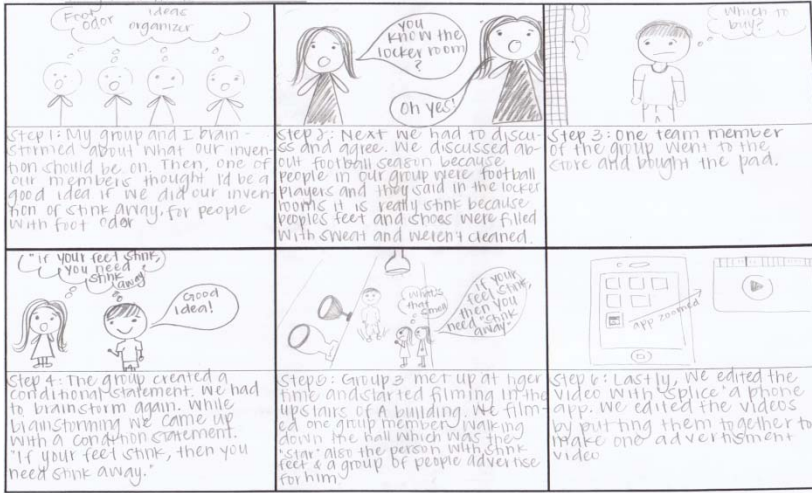 Foot ideas
odor organizer
Step 1: My group and I brain-
stormed about what our inven-
tion should be on. Then, one of
our members thought I'd be a
good idea if we did our inven-
tion of stink away, for people
with foot odor
you
know the
locker room
?
Oh yes!
Step 2: Next we had to discu-
ss and agree. We discussed ab-
out football season because
people in our group were football
players and they said in the locker
rooms it is really stink because
peoples feet and shoes were filled
with sweat and weren't cleaned.
Which to
buy?
Step 3: One team member
of the group went to the
store and bought the pad.
"If your feet stink,
you need
stink
away"
Good
Idea!
Step 4: The group created a
conditional statement. We had
to brainstorm again. While
brainstorming we came up
with a condition statement.
"If your feet stink, then you
need stink away."
What's
that smell
If your
feet stink,
then you
need "stink
away"
Step 5: Group 3 met up at tiger
time and started filming in the
upstairs of A building. We film-
ed one group member walking
down the hall which was the
"star" also the person with stink
feet & a group of people advertise
for him.
app zoomed
Step 6: Lastly, we edited the
video with splice a phone
app. We edited the videos
by putting them together to
make one advertisment
video